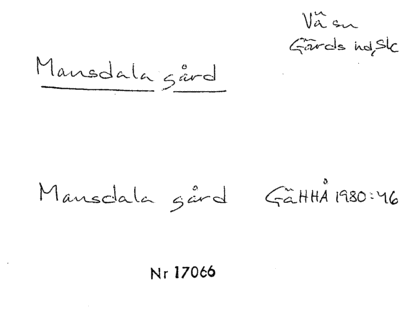 Vä sn
Gärds hd, Sk
Mansdala gård
Mansdala gård GäHHÅ 1980:46
Nr 17066